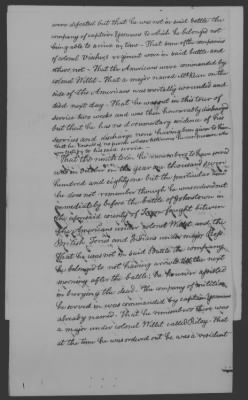 were defeated but that he was not in said battle the
company of captain Yeomans to which he belonged not
being able to arrive in time - That some of the companies
of colonel Vischers regiment were in said battle and
others not - That the Americans were commanded by
colonel Willet - That a major named McKean on the
side of the Americans was mortally wounded and
died next day. That he was out on this tour of
service two weeks and was then honourably discharged
but that he has no documentary evidence of his
services and discharge none having been given to him
that he knows of no person whose testimony he can procure who
can testify to his said service -
That the ninth term he was out by to been served
was in October in the year one thousand seven
hundred and eighty one but the particular time
he does not remember though he was ordered out
immediately before the battle of Johnstown in
the aforesaid county of Tryon fought between
the Americans under colonel Willet and the
British Tories and Indians under major Ross.
That he was not in said battle the company
he belonged to not having arrived till the next
morning after the battle; he however assisted
in burying the dead. The company of militia
he served in was commanded by captain Yeomans
already named. That he remembers there was
a major under colonel Willet called Riley. That
at the time he was ordered out he was a resident